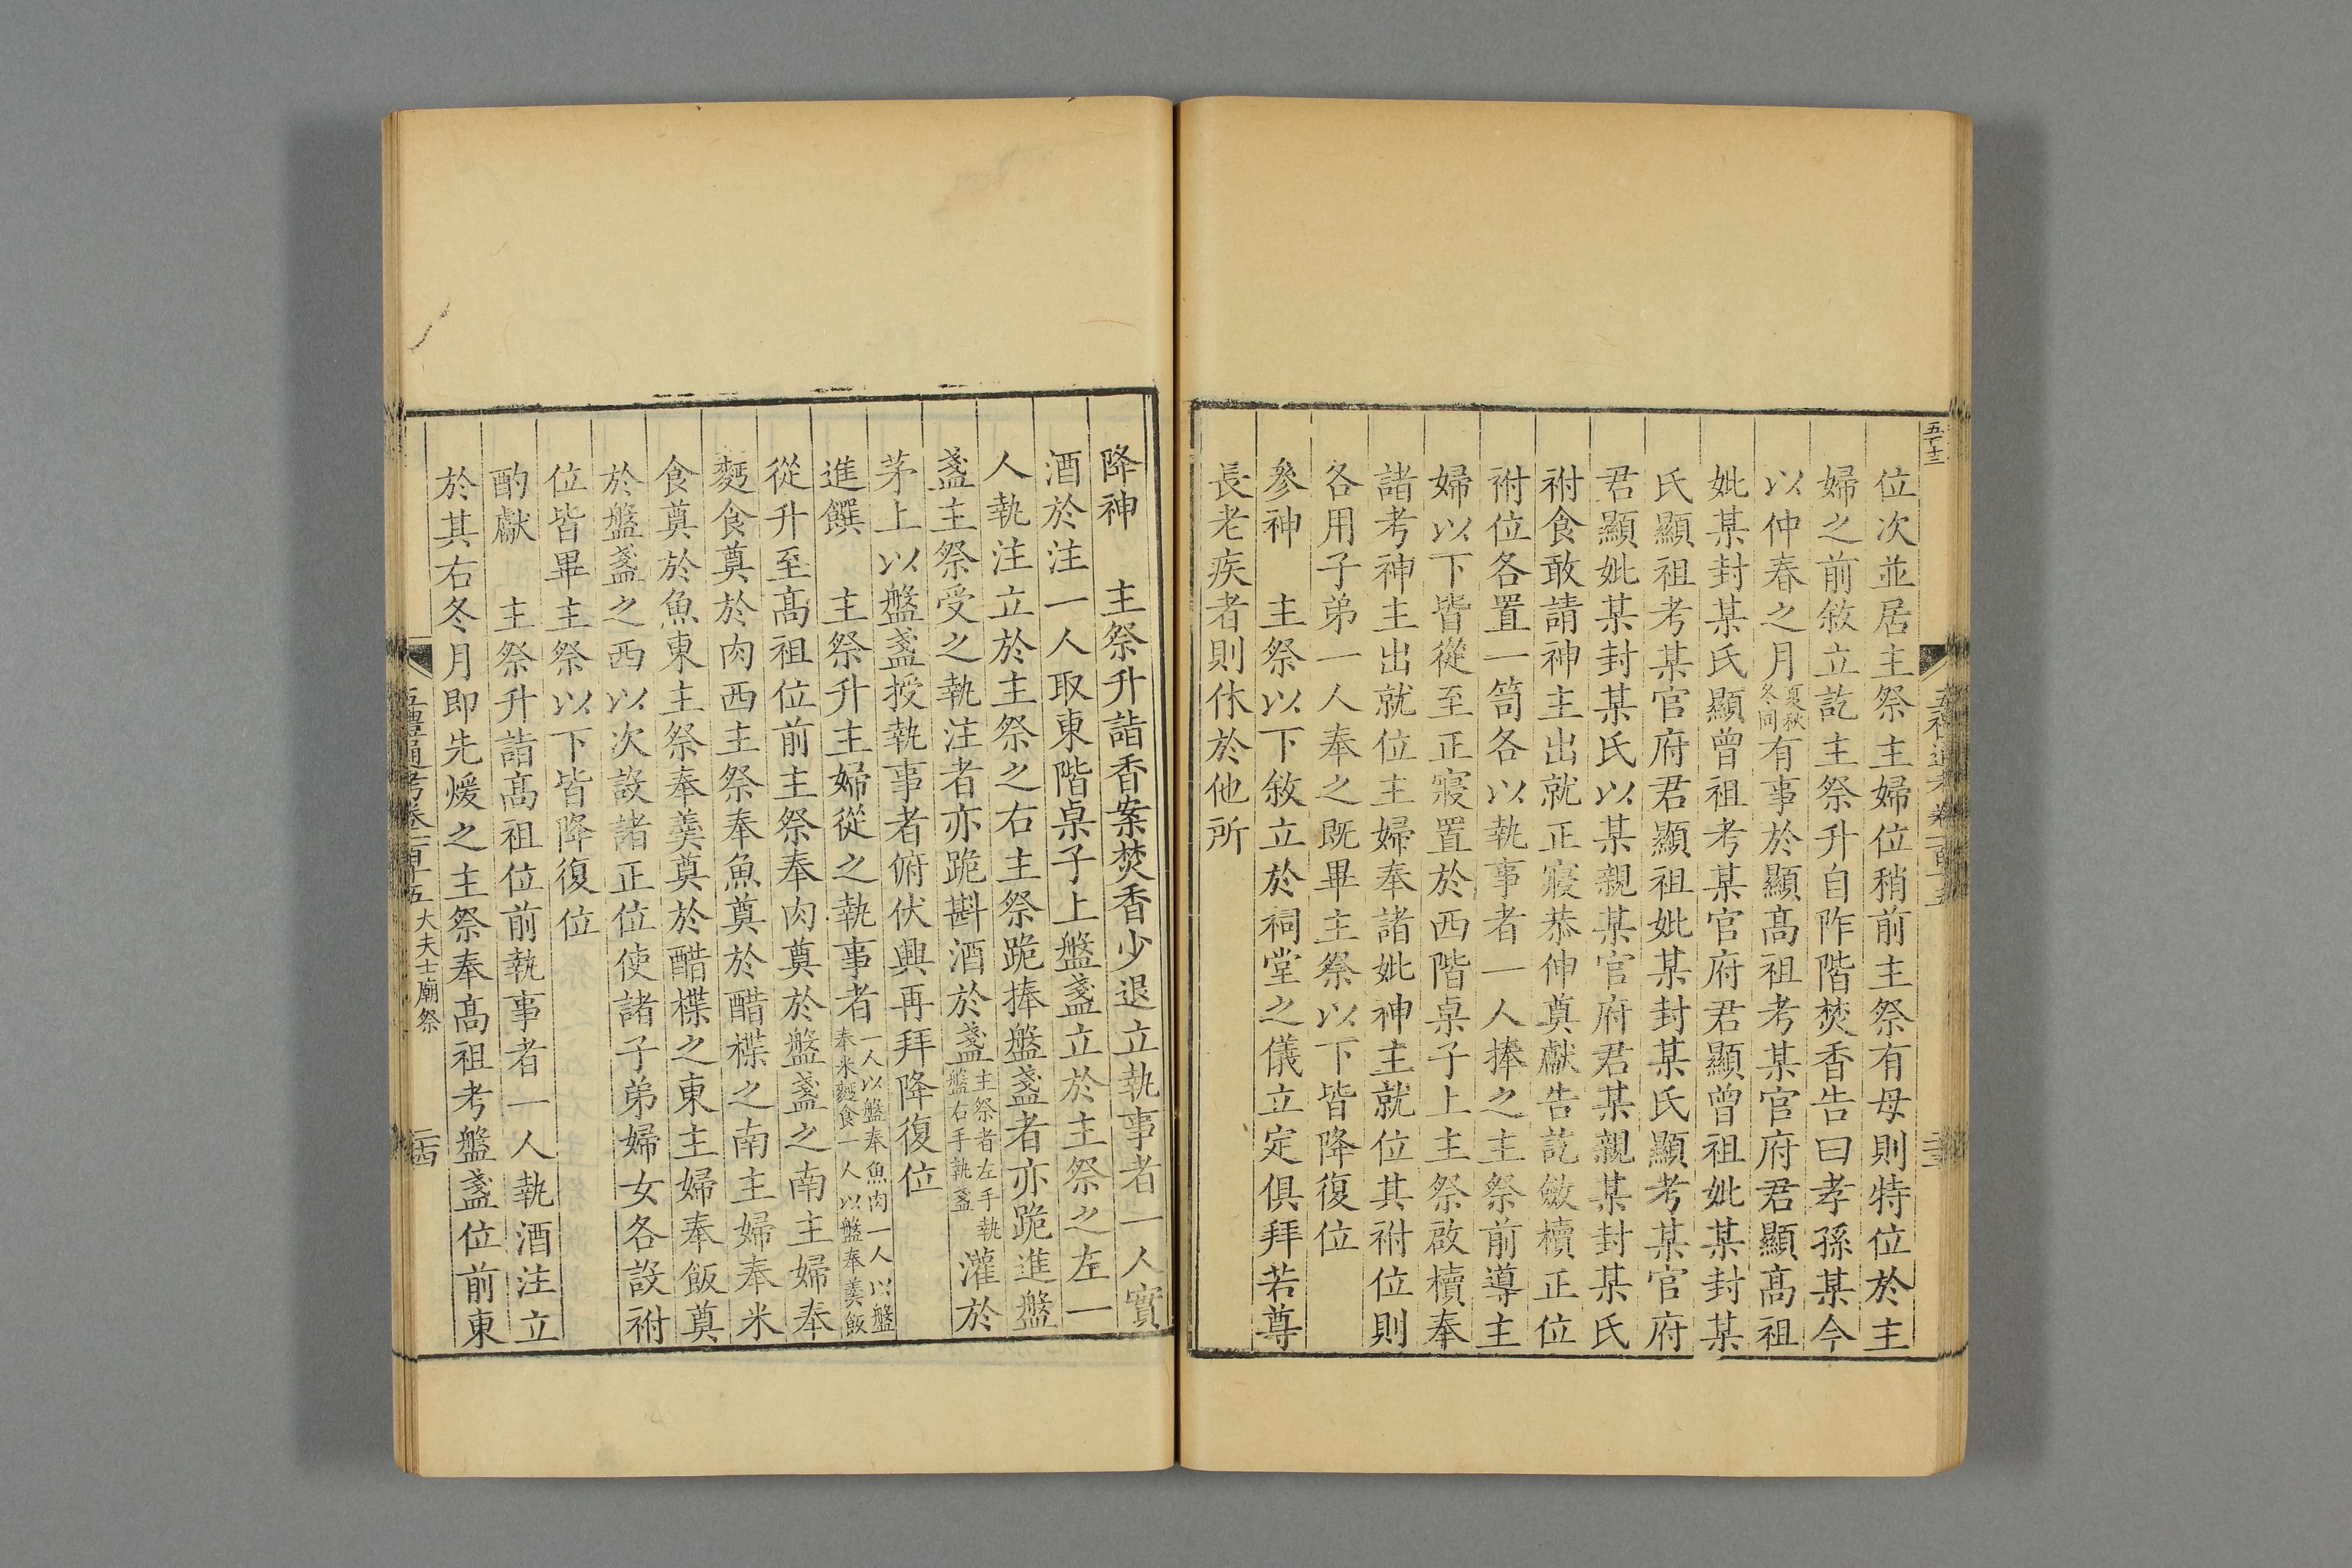 位次並居主祭主婦位稍前主祭有母則特位於主
婦之前敘立訖主祭升自阼階焚香告曰孝孫某今
以仲春之月夏秋冬同有事於顯高祖考某官府君顯高祖
妣某封某氏顯曾祖考某官府君顯曾祖妣某封某
氏顯祖考某官府君顯祖妣某封某氏顯考某官府
君顯妣某封某氏以某親某官府君某親某封某氏
祔食敢請神主出就正寢恭伸奠獻告訖斂櫝正位
祔位各置一笥各以執事者一人捧之主祭前導主
婦以下皆從至正寢置於西階桌子上主祭啟櫝奉
諸考神主出就位主婦奉諸妣神主就位其祔位則
各用子弟一人奉之既畢主祭以下皆降復位
參神　主祭以下敘立於祠堂之儀立定俱拜若尊
長老疾者則休於他所
降神　主祭升詣香案焚香少退立執事者一人實
酒於注一人取東階桌子上盤盞立於主祭之左一
人執注立於主祭之右主祭跪捧盤盞者亦跪進盤
盞主祭受之執注者亦跪斟酒於盞主祭者左手執盤右手執盞灌於
茅上以盤盞授執事者俯伏興再拜降復位
進饌　主祭升主婦從之執事者一人以盤奉魚肉一人以盤奉米麪食一人以盤奉羹飯
從升至高祖位前主祭奉肉奠於盤盞之南主婦奉
麪食奠於肉西主祭奉魚奠於醋楪之南主婦奉米
食奠於魚東主祭奉羹奠於醋楪之東主婦奉飯奠
於盤盞之西以次設諸正位使諸子弟婦女各設祔
位皆畢主祭以下皆降復位
酌獻　主祭升詣高祖位前執事者一人執酒注立
於其右冬月即先煖之主祭奉高祖考盤盞位前東
五禮通考卷一百十五 大夫士廟祭 二四